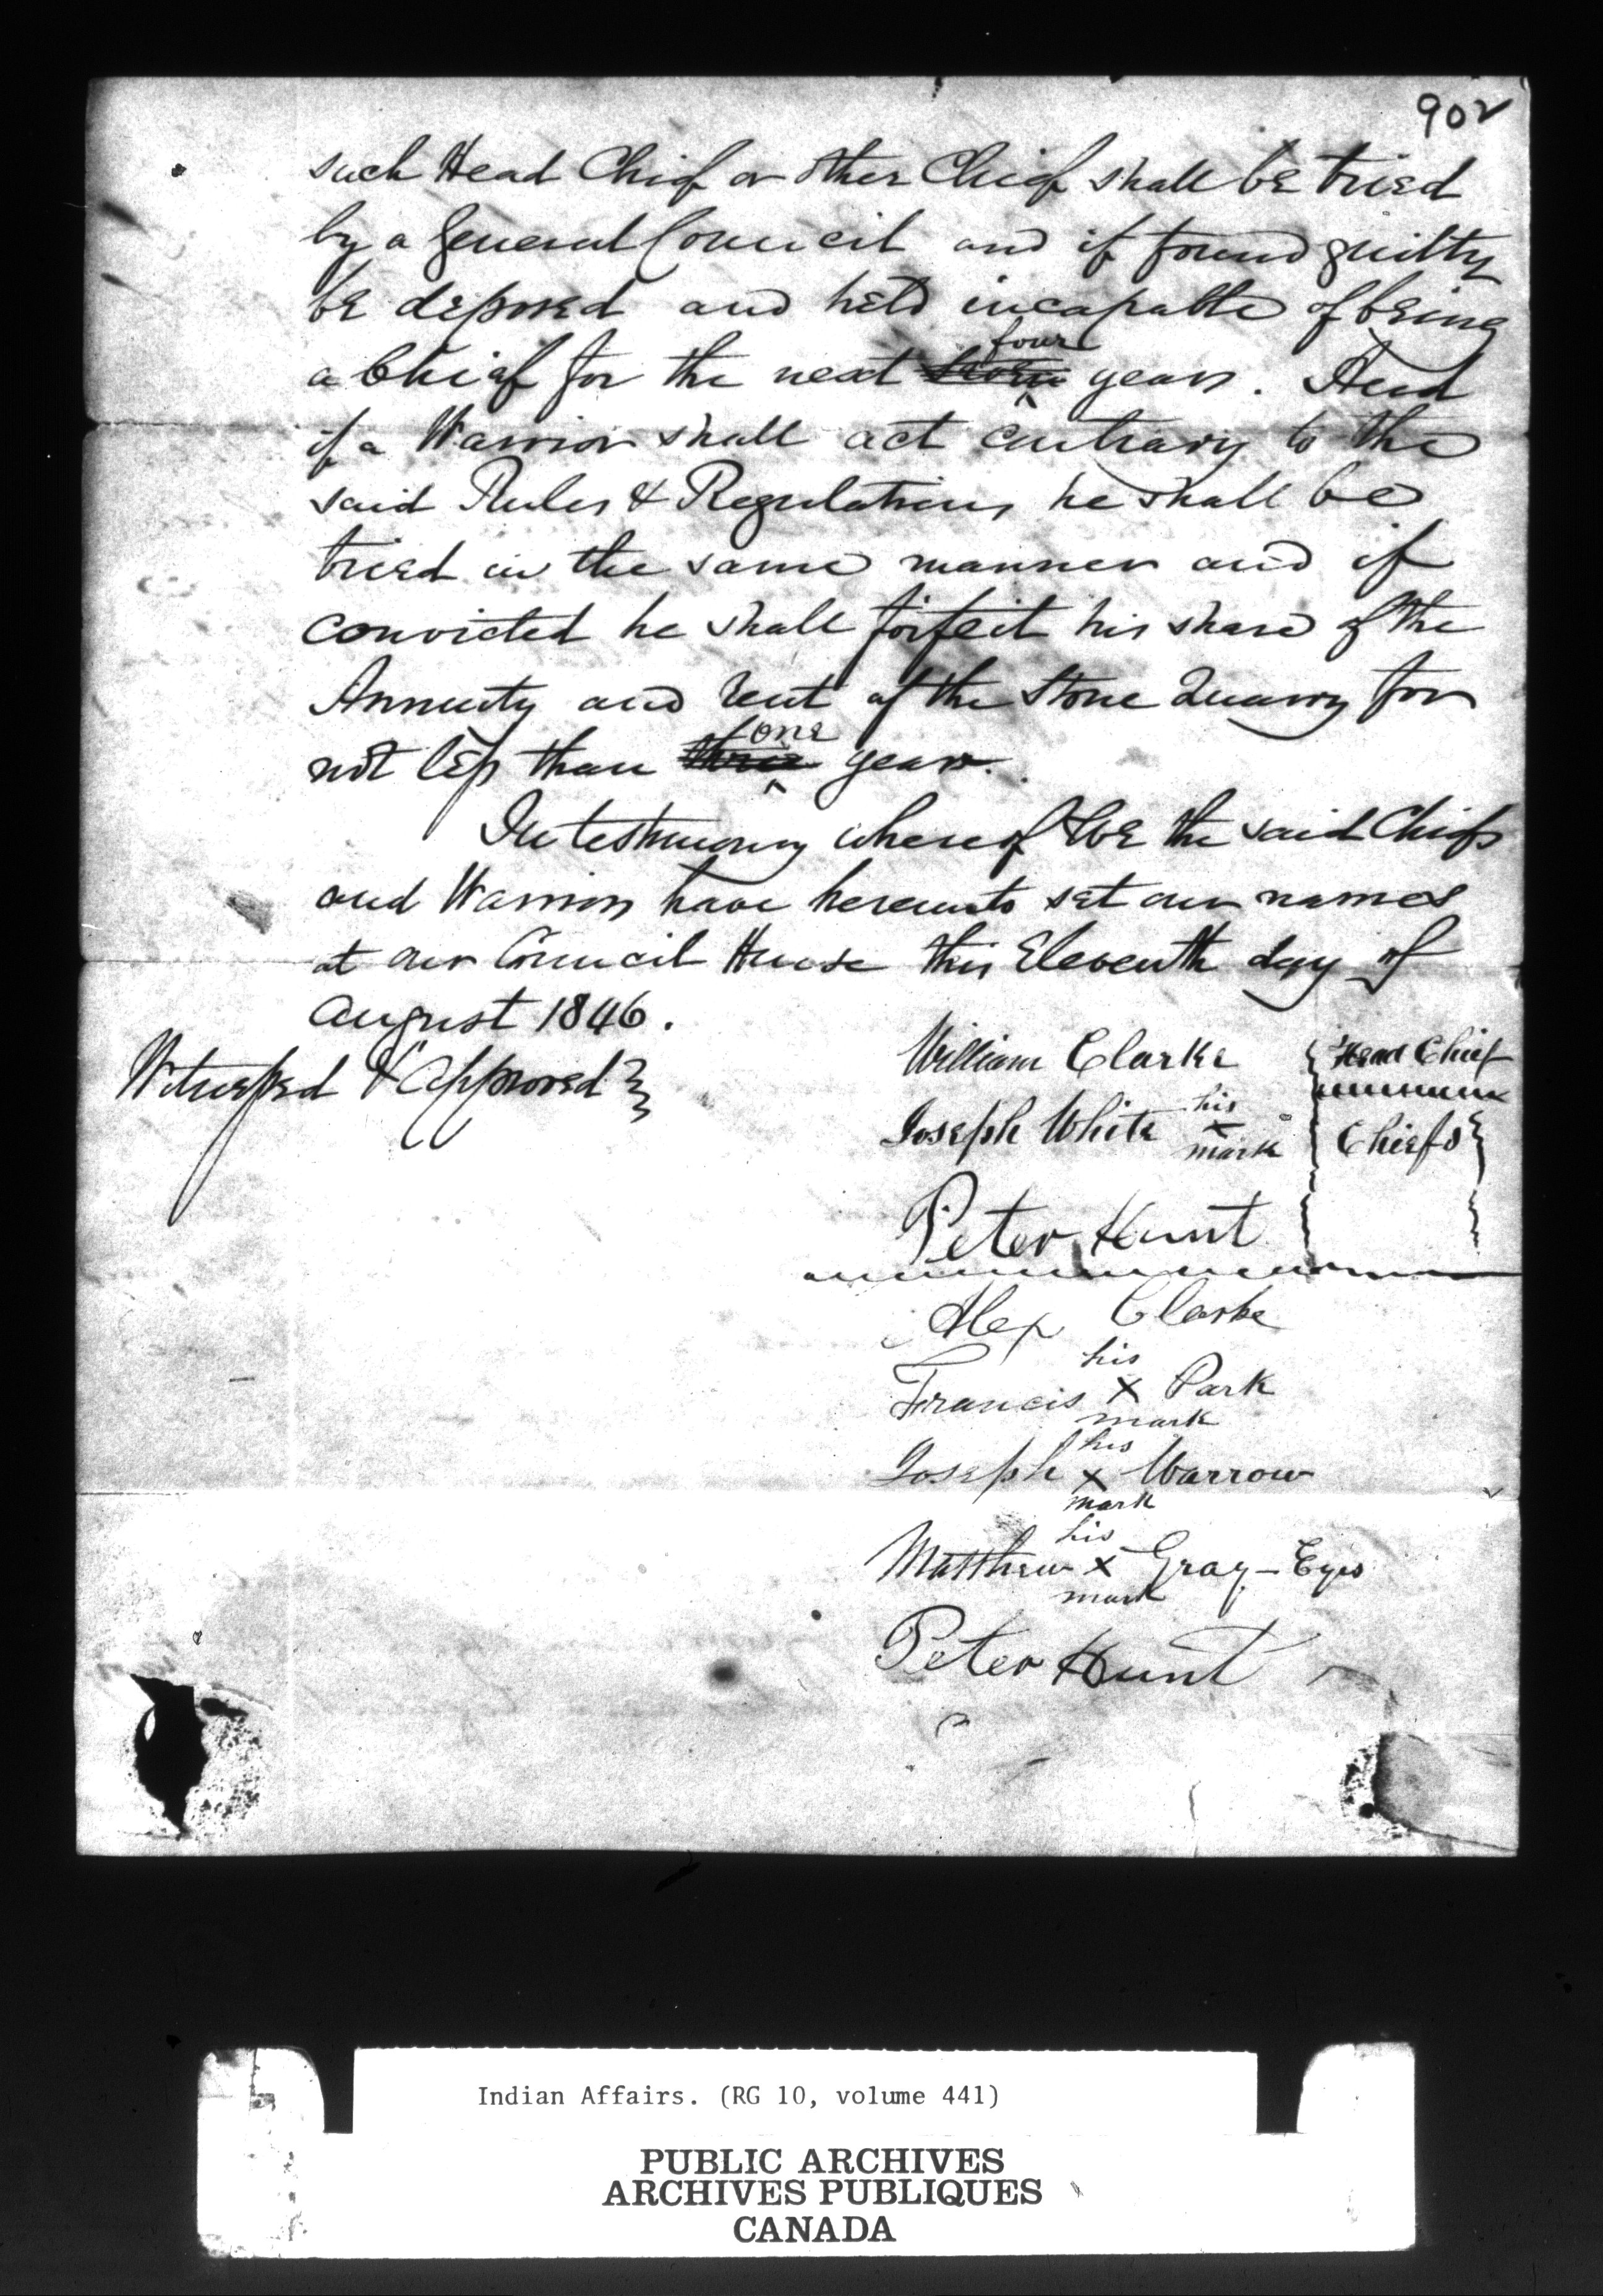 902
such Head Chief or other Chief shall be tried
by a General Council and if found guilty
be deposed and held incapable of being
a Chief for the next seven four years. And
if a Warrior shall act contrary to the
said Rules & Regulations he shall be
tried in the same manner and if
convicted he shall forfeit his share of the
Annuity and rent of the Stone Quarry for
not less than three one years.
In testimony whereof We the said Chiefs
and Warriors have hereunto set our names
at our Council House this Eleventh day of
August 1846.
Witnessed & Approved
William Clarke Head Chief
Joseph White his x mark Chiefs
Peter Hunt
Alex Clarke
Francis his x mark Park
Joseph his x mark Warrow
Matthew his x mark Gray-Eyes
Peter Hunt
Indian Affairs. (RG 10, volume 441)
PUBLIC ARCHIVES
ARCHIVES PUBLIQUES
CANADA